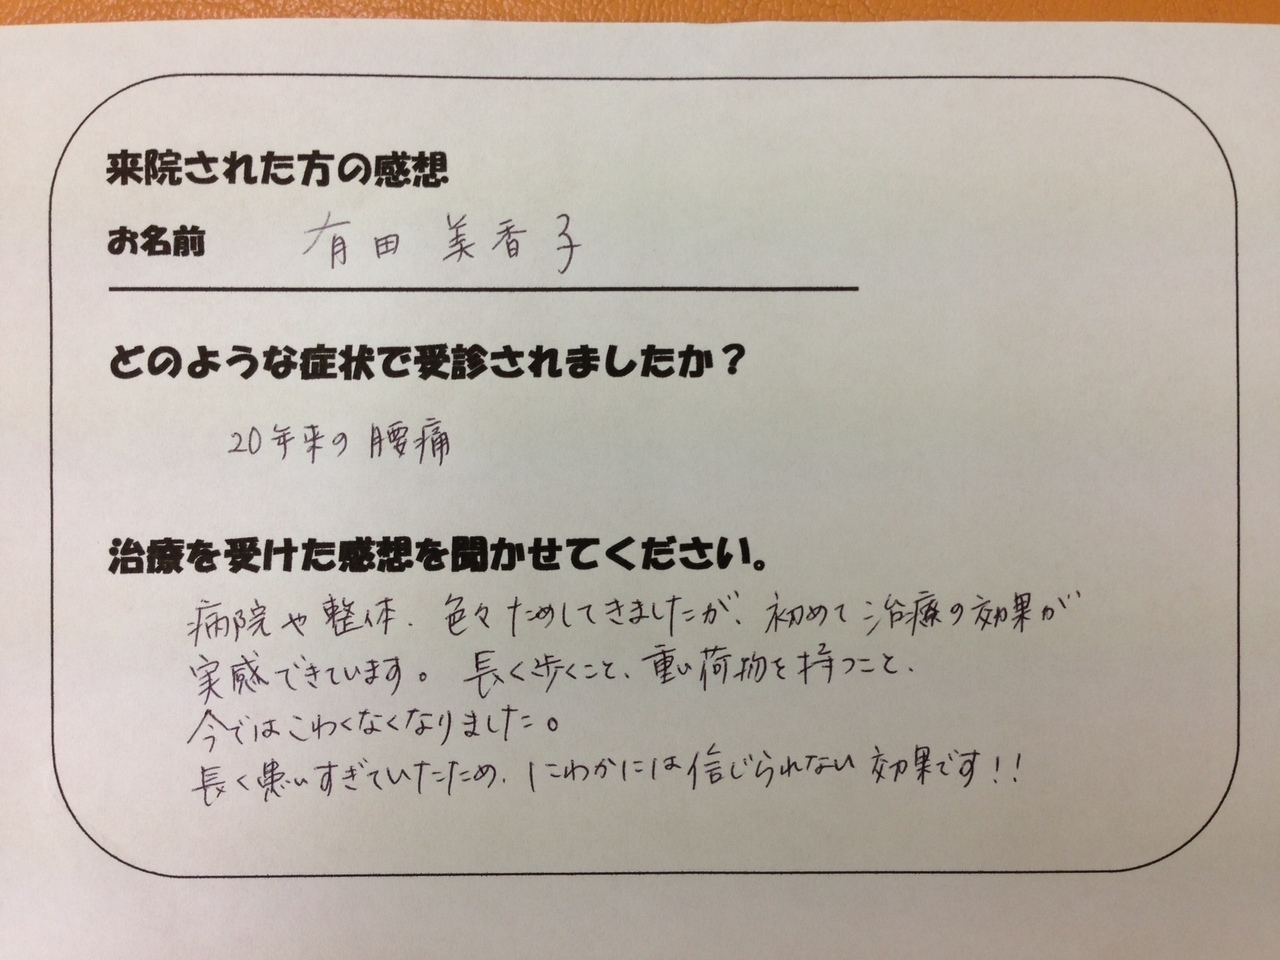 来院された方の感想
お名前 有田 美香子
どのような症状で受診されましたか？
20年来の腰痛
治療を受けた感想を聞かせてください。
病院や整体、色々ためしてきましたが、初めて治療の効果が
実感できています。長く歩くこと、重い荷物を持つこと、
今ではこわくなくなりました。
長く患いすぎていたため、にわかには信じられない効果です！！